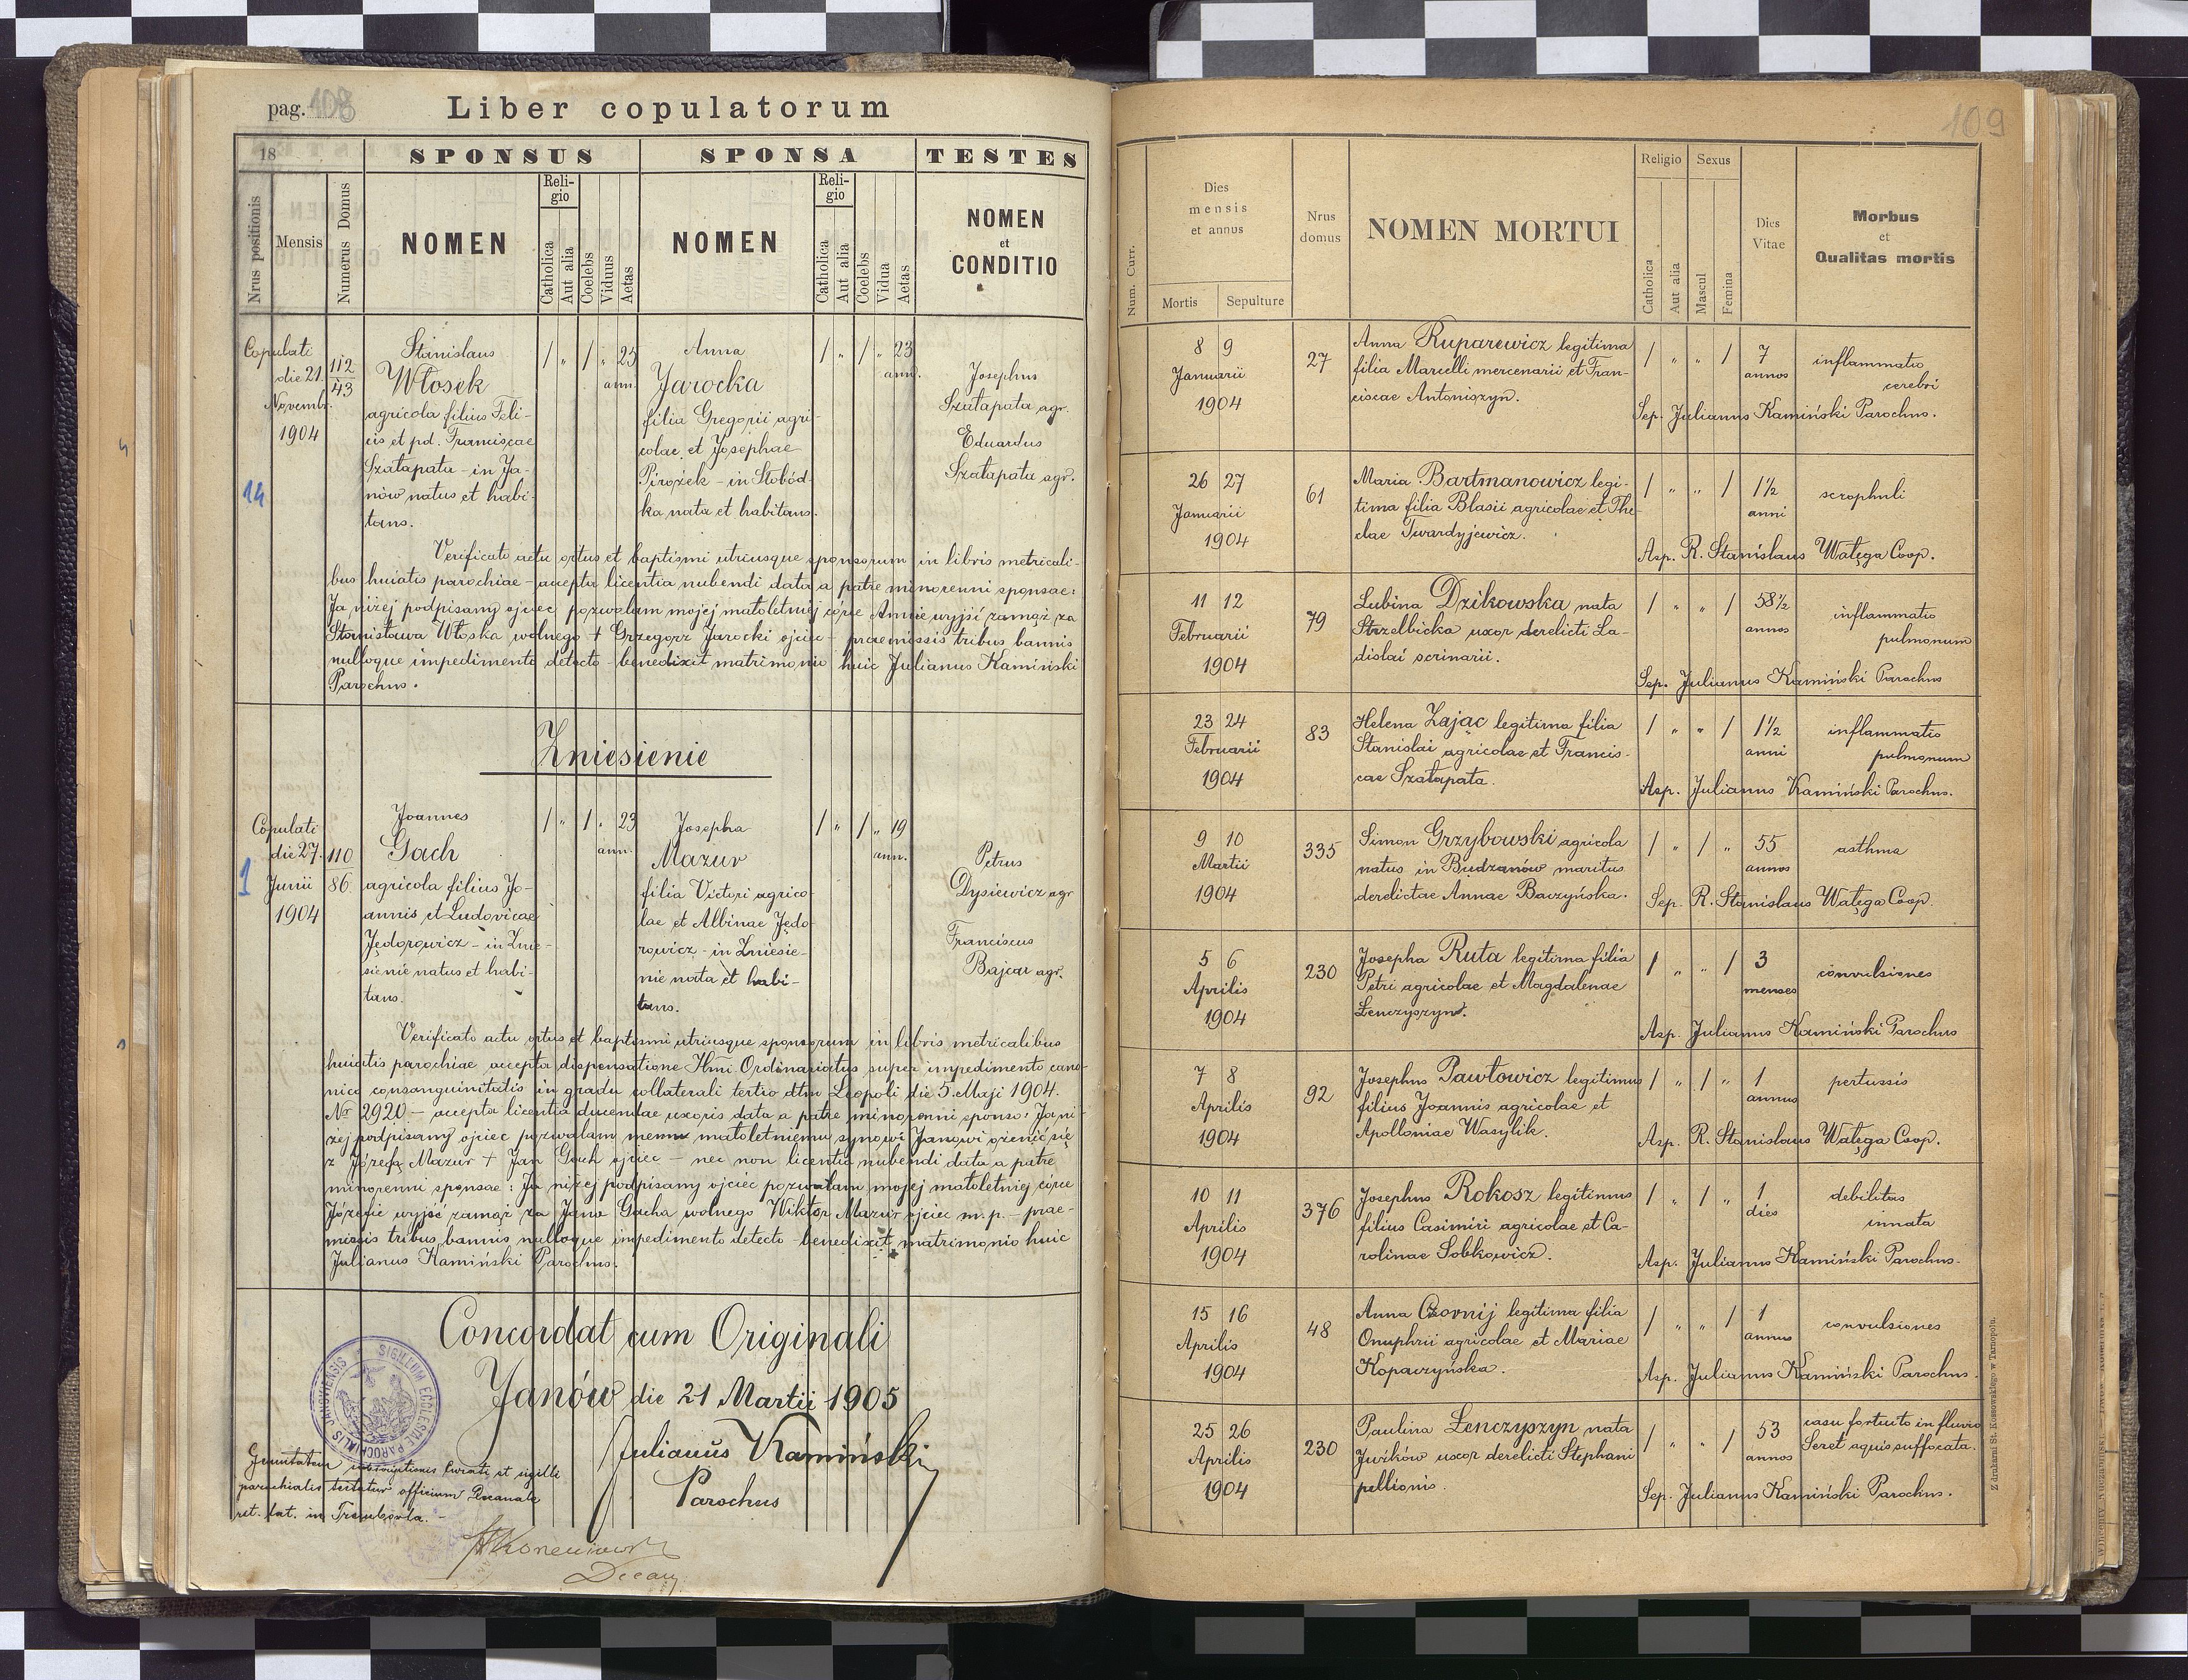 pag. 108 Liber copulatorum
18 SPONSUS SPONSA TESTES
Nrus positionis Mensis Numerus Domus NOMEN Religio Catholica Aut alia Coelebs Viduus Aetas NOMEN Religio Catholica Aut alia Coelebs Vidua Aetas NOMEN et CONDITIO
14
Copulati
die 21.
Novembr.
1904
112
43
Stanislaus
Włosek
agricola filius Feli-
cis et pd. Franciscae
Szałapata - in Ja-
nów natus et habi-
tans.
1 „ 1 „ 25
ann.
Anna
Jarocka
filia Gregorii agri-
colae et Josephae
Pirożek - in Słobód-
ka nata et habitans.
1 „ 1 „ 23
ann.
Josephus
Szałapata agr.
Eduardus
Szałapata agr.
Verificato actu ortus et baptismi utriusque sponsorum in libris metricali-
bus huiatis parochiae - accepta licentia nubendi data a patre minorenni sponsae:
Ja niżej podpisany ojciec pozwalam mojej małoletniej córce Annie wyjść zamąż za
Stanisława Włoska wolnego + Grzegorz Jarocki ojciec - praemissis tribus bannis
nulloque impedimento detecto - benedixit matrimonio huic Julianus Kamiński
Parochus.
Zniesienie
1
Copulati
die 27.
Junii
1904
110
86
Joannes
Gach
agricola filius Jo-
annis et Ludovicae
Jedorowicz - in Znie-
sienie natus et habi-
tans.
1 „ 1 „ 23
ann.
Josepha
Mazur
filia Victori agrico-
lae et Albinae Jędo-
rowicz - in Zniesie-
nie nata et habi-
tans.
1 „ 1 „ 19
ann.
Petrus
Dysiewicz agr
Franciscus
Bajcar agr.
Verificato actu ortus et baptismi utriusque sponsorum in libris metricalibus
huiatis parochiae accepta dispensatione Illmi Ordinariatus super impedimento cano-
nico consanguinitatis in gradu collaterali tertio dtto Leopoli die 5. Maji 1904.
№ 2920 - accepta licentia ducendae uxoris data a patre minorenni sponso: Ja ni-
żej podpisany ojciec pozwalam memu małoletniemu synowi Janowi ożenić się
z Józefą Mazur + Jan Gach ojciec - nec non licentia nubendi data a patre
minorenni sponsae: Ja niżej podpisany ojciec pozwalam mojej małoletniej córce
Józefie wyjść zamąż za Jana Gacha wolnego Wiktor Mazur ojciec m. p. - prae-
missis tribus bannis nulloque impedimento detecto - benedixit matrimonio huic
Julianus Kamiński Parochus.
Concordat cum Originali
Janów die 21 Martii 1905
Julianus Kamiński
Parochus
SIGILLUM ECCLESIAE PAROCHIALIS JANOVIENSIS
subscriptionis Curati et sigilli
parochialis testatur officium Decanale
rit. lat. in Trembowla.
Decan
109
Num. Curr. Dies mensis et annus Mortis Sepulture Nrus domus NOMEN MORTUI Religio Catholica Aut alia Sexus Mascul Femina Dies Vitae Morbus et Qualitas mortis
8 9
Januarii
1904
27
Anna Ruparewicz legitima
filia Marcelli mercenarii et Fran-
ciscae Antoniszyn.
1 „ „ 1 7
annos
inflammatio
cerebri
Sep. Julianus Kamiński Parochus.
26 27
Januarii
1904
61
Maria Bartmanowicz legi-
tima filia Blasii agricolae et The-
clae Twardyjewicz.
1 „ „ 1 1½
anni
scrophuli
Asp. R. Stanislaus Wałęga Coop.
11 12
Februarii
1904
79
Lubina Dzikowska nata
Strzelbicka uxor derelicti La-
dislai scrinarii.
1 „ „ 1 58½
annos
inflammatio
pulmonum
Sep. Julianus Kamiński Parochus
23 24
Februarii
1904
83
Helena Zajac legitima filia
Stanislai agricolae et Francis-
cae Szałapata.
1 „ „ 1 1½
anni
inflammatio
pulmonum
Asp. Julianus Kamiński Parochus.
9 10
Martii
1904
335
Simon Grzybowski agricola
natus in Budzanów maritus
derelictae Annae Baczyńska.
1 „ 1 „ 55
annos
asthma
Sep. R. Stanislaus Wałęga Coop.
5 6
Aprilis
1904
230
Josepha Ruta legitima filia
Petri agricolae et Magdalenae
Łenczyszyn.
1 „ „ 1 3
menses
convulsiones
Asp. Julianus Kamiński Parochus
7 8
Aprilis
1904
92
Josephus Pawłowicz legitimus
filius Joannis agricolae et
Apolloniae Wasylik.
1 „ 1 „ 1
annus
pertussis
Asp. R. Stanislaus Wałęga Coop.
10 11
Aprilis
1904
376
Josephus Rokosz legitimus
filius Casimiri agricolae et Ca-
rolinae Sobkowicz.
1 „ 1 „ 1
dies
debilitas
innata
Asp. Julianus Kamiński Parochus.
15 16
Aprilis
1904
48
Anna Czornij legitima filia
Onuphrii agricolae et Mariae
Kopaczyńska.
1 „ „ 1 1
annus
convulsiones
Asp. Julianus Kamiński Parochus.
25 26
Aprilis
1904
230
Paulina Łenczyszyn nata
Jurików uxor derelicti Stephani
pellionis.
1 „ „ 1 53
annos
casu fortuito in fluvio
Seret aquis suffocata.
Sep. Julianus Kamiński Parochus.
Z drukarni St. Kossowskiego w Tarnopolu.